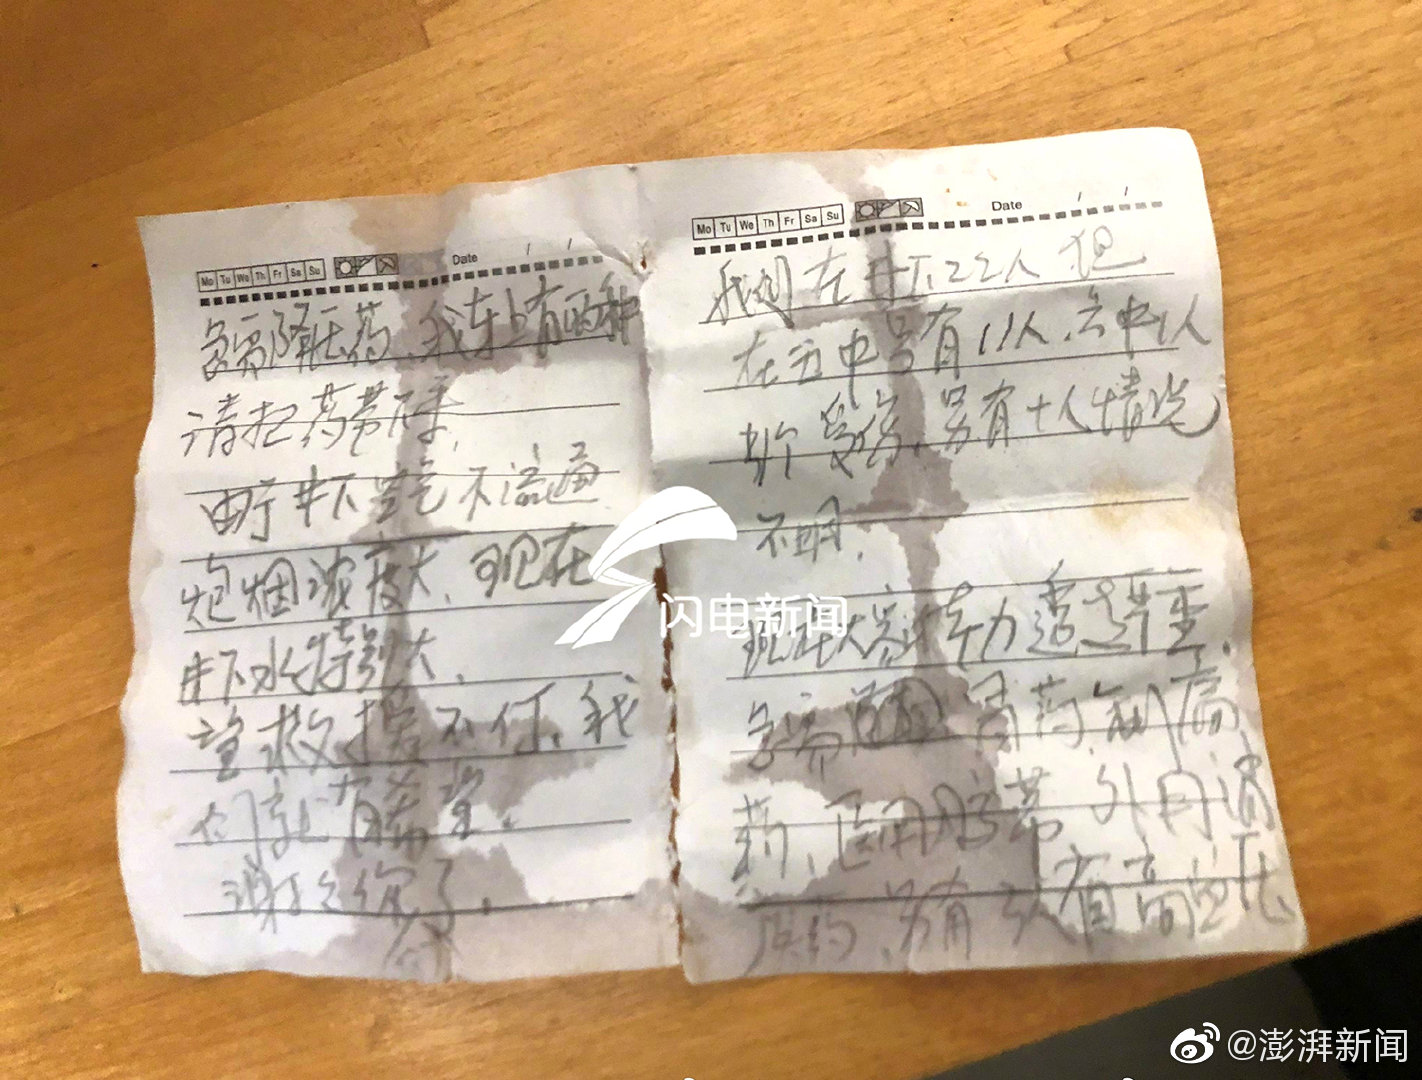 Mo Tu We Th Fr Sa Su Date
我们在井下22人 现
在五中 有11人,六中1人
受伤,另有十人情况
不明,
现在大家体力透支严重.
急需 胃药、制痛
药、医用胶带、外用消
炎药、另有 人有高血压
Mo Tu We Th Fr Sa Su Date
急需降压药、我车上有两种
请把药带下来,
由于井下空气不流通
炮烟浓度大、现在
井下水特别大,
望救援不停、我
们就有希望.
谢谢你们了.
闪电新闻
@澎湃新闻